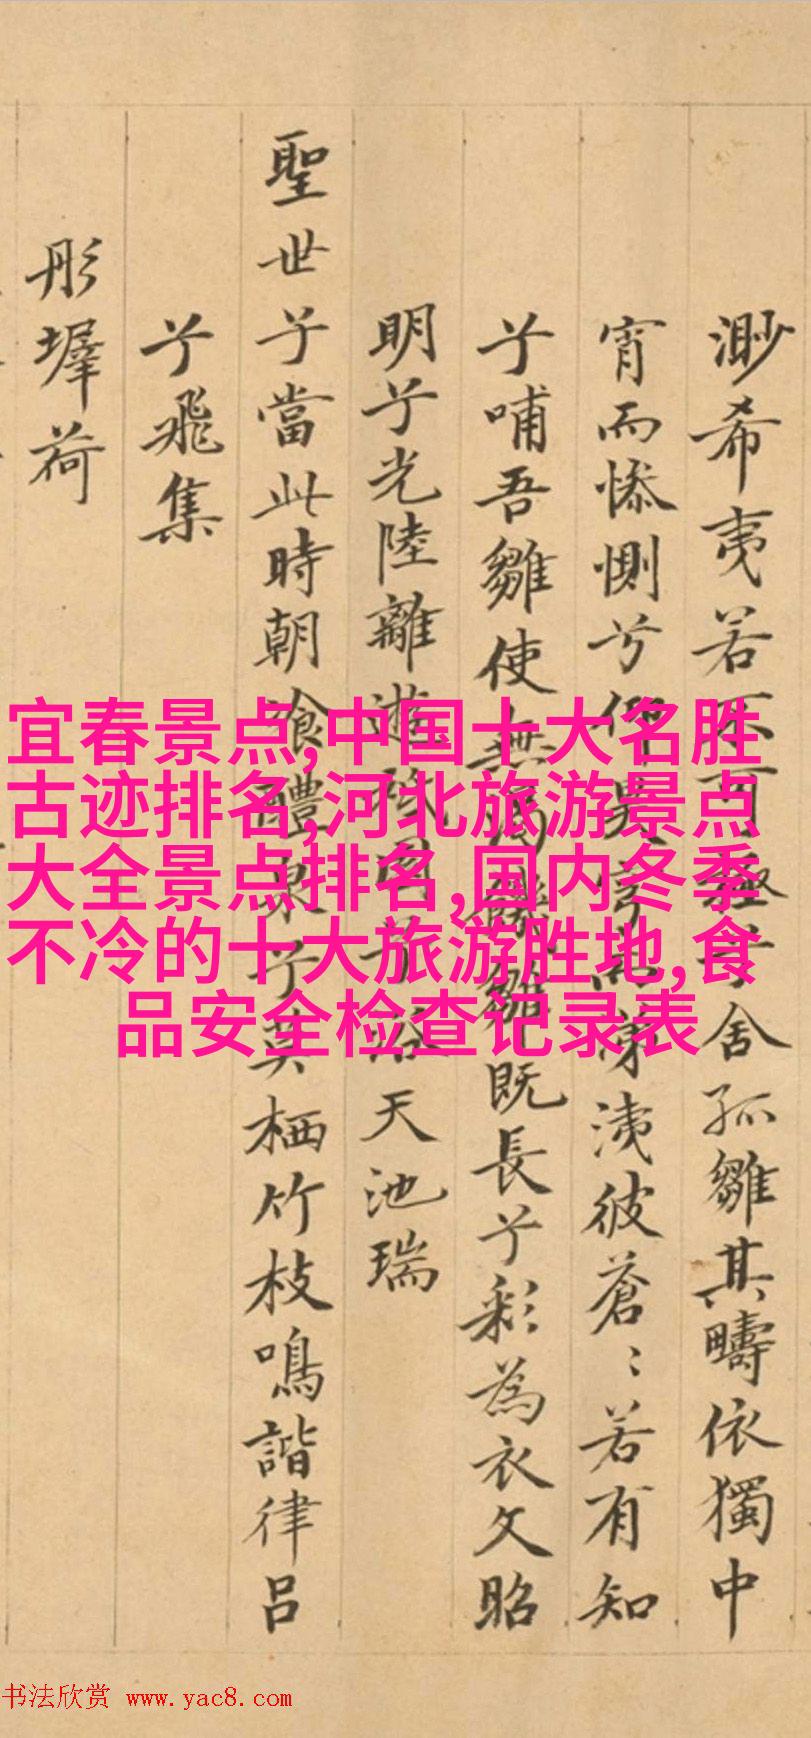 渺希夷若不可極兮舍孤雛其疇依獨中
宵而慘惻兮仰昊穹而涕洟彼蒼〻若有知
兮哺吾雛使無雛既長兮彩為衣文昭
明兮光陸離遊兮天池瑞
聖世兮當此時朝飧醴泉兮莫栖竹枝鳴諧律呂
兮飛集
彤墀荷
宜春景点,中国十大名胜
古迹排名,河北旅游景点
大全景点排名,国内冬季
不冷的十大旅游胜地,食
品安全检查记录表
书法欣赏 www.yac8.com